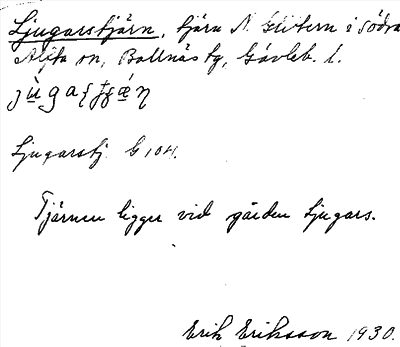 Ljugarstjärn, tjärn N. Glittern i södra
Alfta sn, Bollnäs tg, Gävleb. l.
Ljugarstj. G 104.
Tjärnen ligger vid gården Ljugars.
Erik Eriksson 1930.